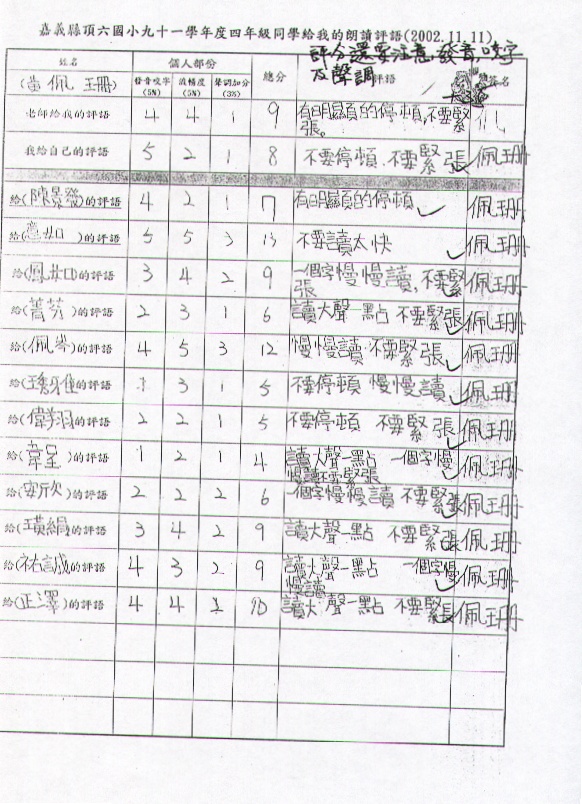 嘉義縣頂六國小九十一學年度四年級同學給我的朗讀評語(2002.11.11)
評分還要注意發音咬字
及聲調
姓名 個人部份 總分 評語 簽名
(黃佩珊) 發音咬字(5N) 流暢度(5N) 聲調加分(3%)
老師給我的評語 4 4 1 9 有明顯的停頓,不要緊張。
我給自己的評語 5 2 1 8 不要停頓、不要緊張 佩珊
給( )的評語 4 2 1 7 有明顯的停頓 佩珊
給( )的評語 5 5 3 13 不要讀太快 佩珊
給(鳳如)的評語 3 4 2 9 一個字慢慢讀,不要緊張 佩珊
給(菁芬)的評語 2 3 1 6 讀大聲一點 不要緊張 佩珊
給(佩岑)的評語 4 5 3 12 慢慢讀 不要緊張 佩珊
給( )的評語 1 3 1 5 不要停頓 慢慢讀 佩珊
給(偉翔)的評語 2 2 1 5 不要停頓 不要緊張 佩珊
給( )的評語 1 2 1 4 讀大聲一點 一個字慢慢讀不要緊張 佩珊
給(安欣)的評語 2 2 2 6 一個字慢慢讀 不要緊張 佩珊
給(璜絹)的評語 3 4 2 9 讀大聲一點 不要緊張 佩珊
給(祐誠)的評語 4 3 2 9 讀大聲一點 一個字慢慢讀 佩珊
給(正澤)的評語 4 4 2 10 讀大聲一點 不要緊張 佩珊